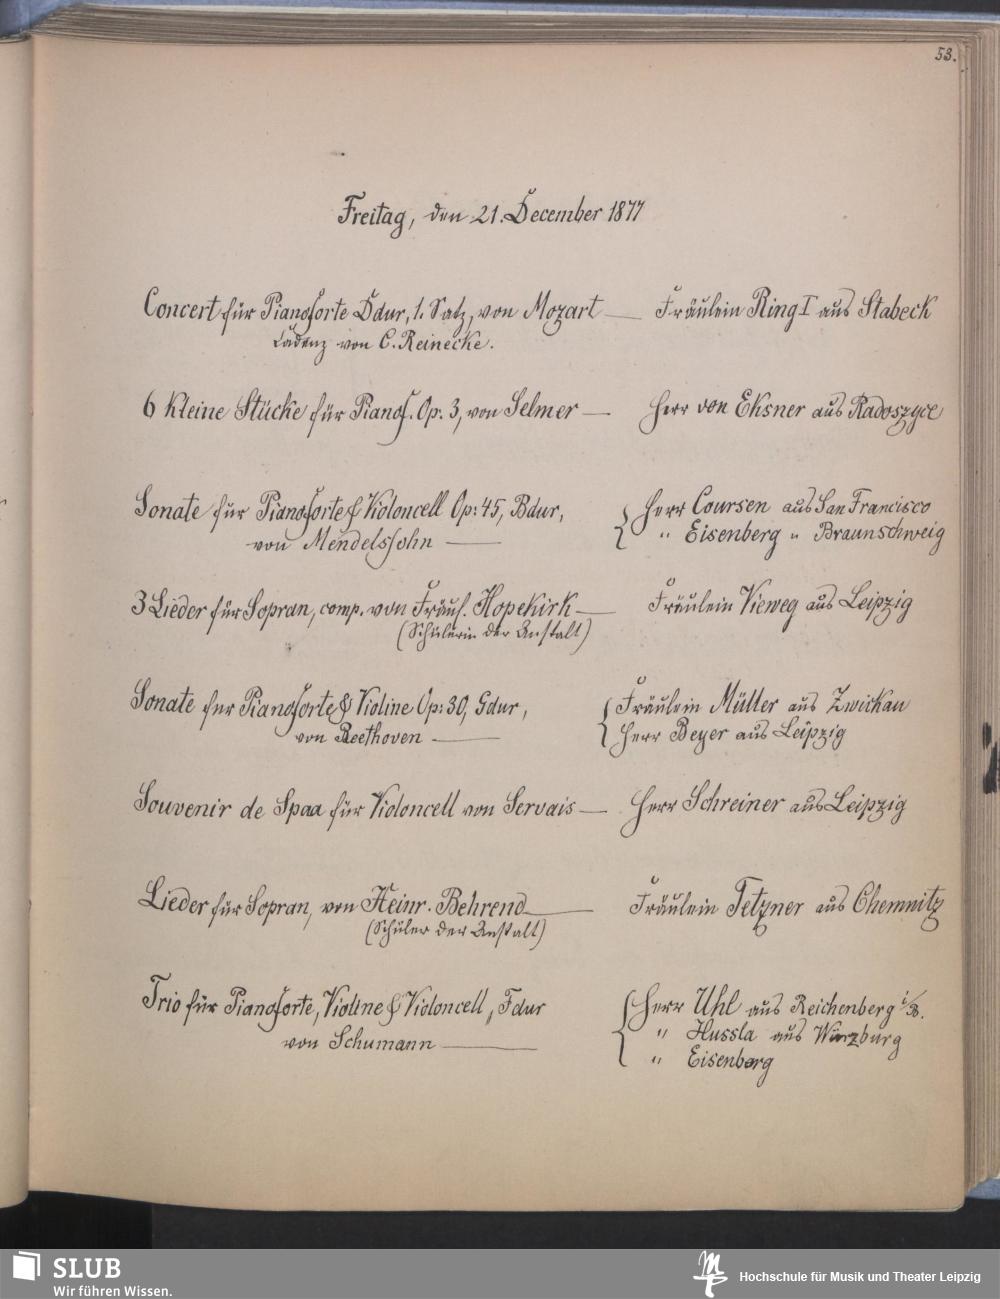 53.
Freitag, den 21. December 1877
Concert für Pianoforte Ddur, 1. Satz, von Mozart — Fräulein Ring I aus Stabeck
Cadenz von C. Reinecke.
6 kleine Stücke für Pianof. Op. 3, von Selmer — Herr von Eksner aus Radoszyce
Sonate für Pianoforte & Violoncell Op: 45, Bdur, { Herr Coursen aus San Francisco
von Mendelssohn — " Eisenberg " Braunschweig
3 Lieder für Sopran, comp. von Fräul. Hopekirk — Fräulein Vieweg aus Leipzig
(Schülerin der Anstalt)
Sonate für Pianoforte & Violine Op: 30, Gdur, { Fräulein Müller aus Zwickau
von Beethoven — Herr Beyer aus Leipzig
Souvenir de Spaa für Violoncell von Servais — Herr Schreiner aus Leipzig
Lieder für Sopran, von Heinr. Behrend — Fräulein Tetzner aus Chemnitz
(Schüler der Anstalt)
Trio für Pianoforte, Violine & Violoncell, Fdur { Herr Uhl aus Reichenberg i/B.
von Schumann — " Hussla aus Würzburg
" Eisenberg
SLUB
Wir führen Wissen.
Hochschule für Musik und Theater Leipzig